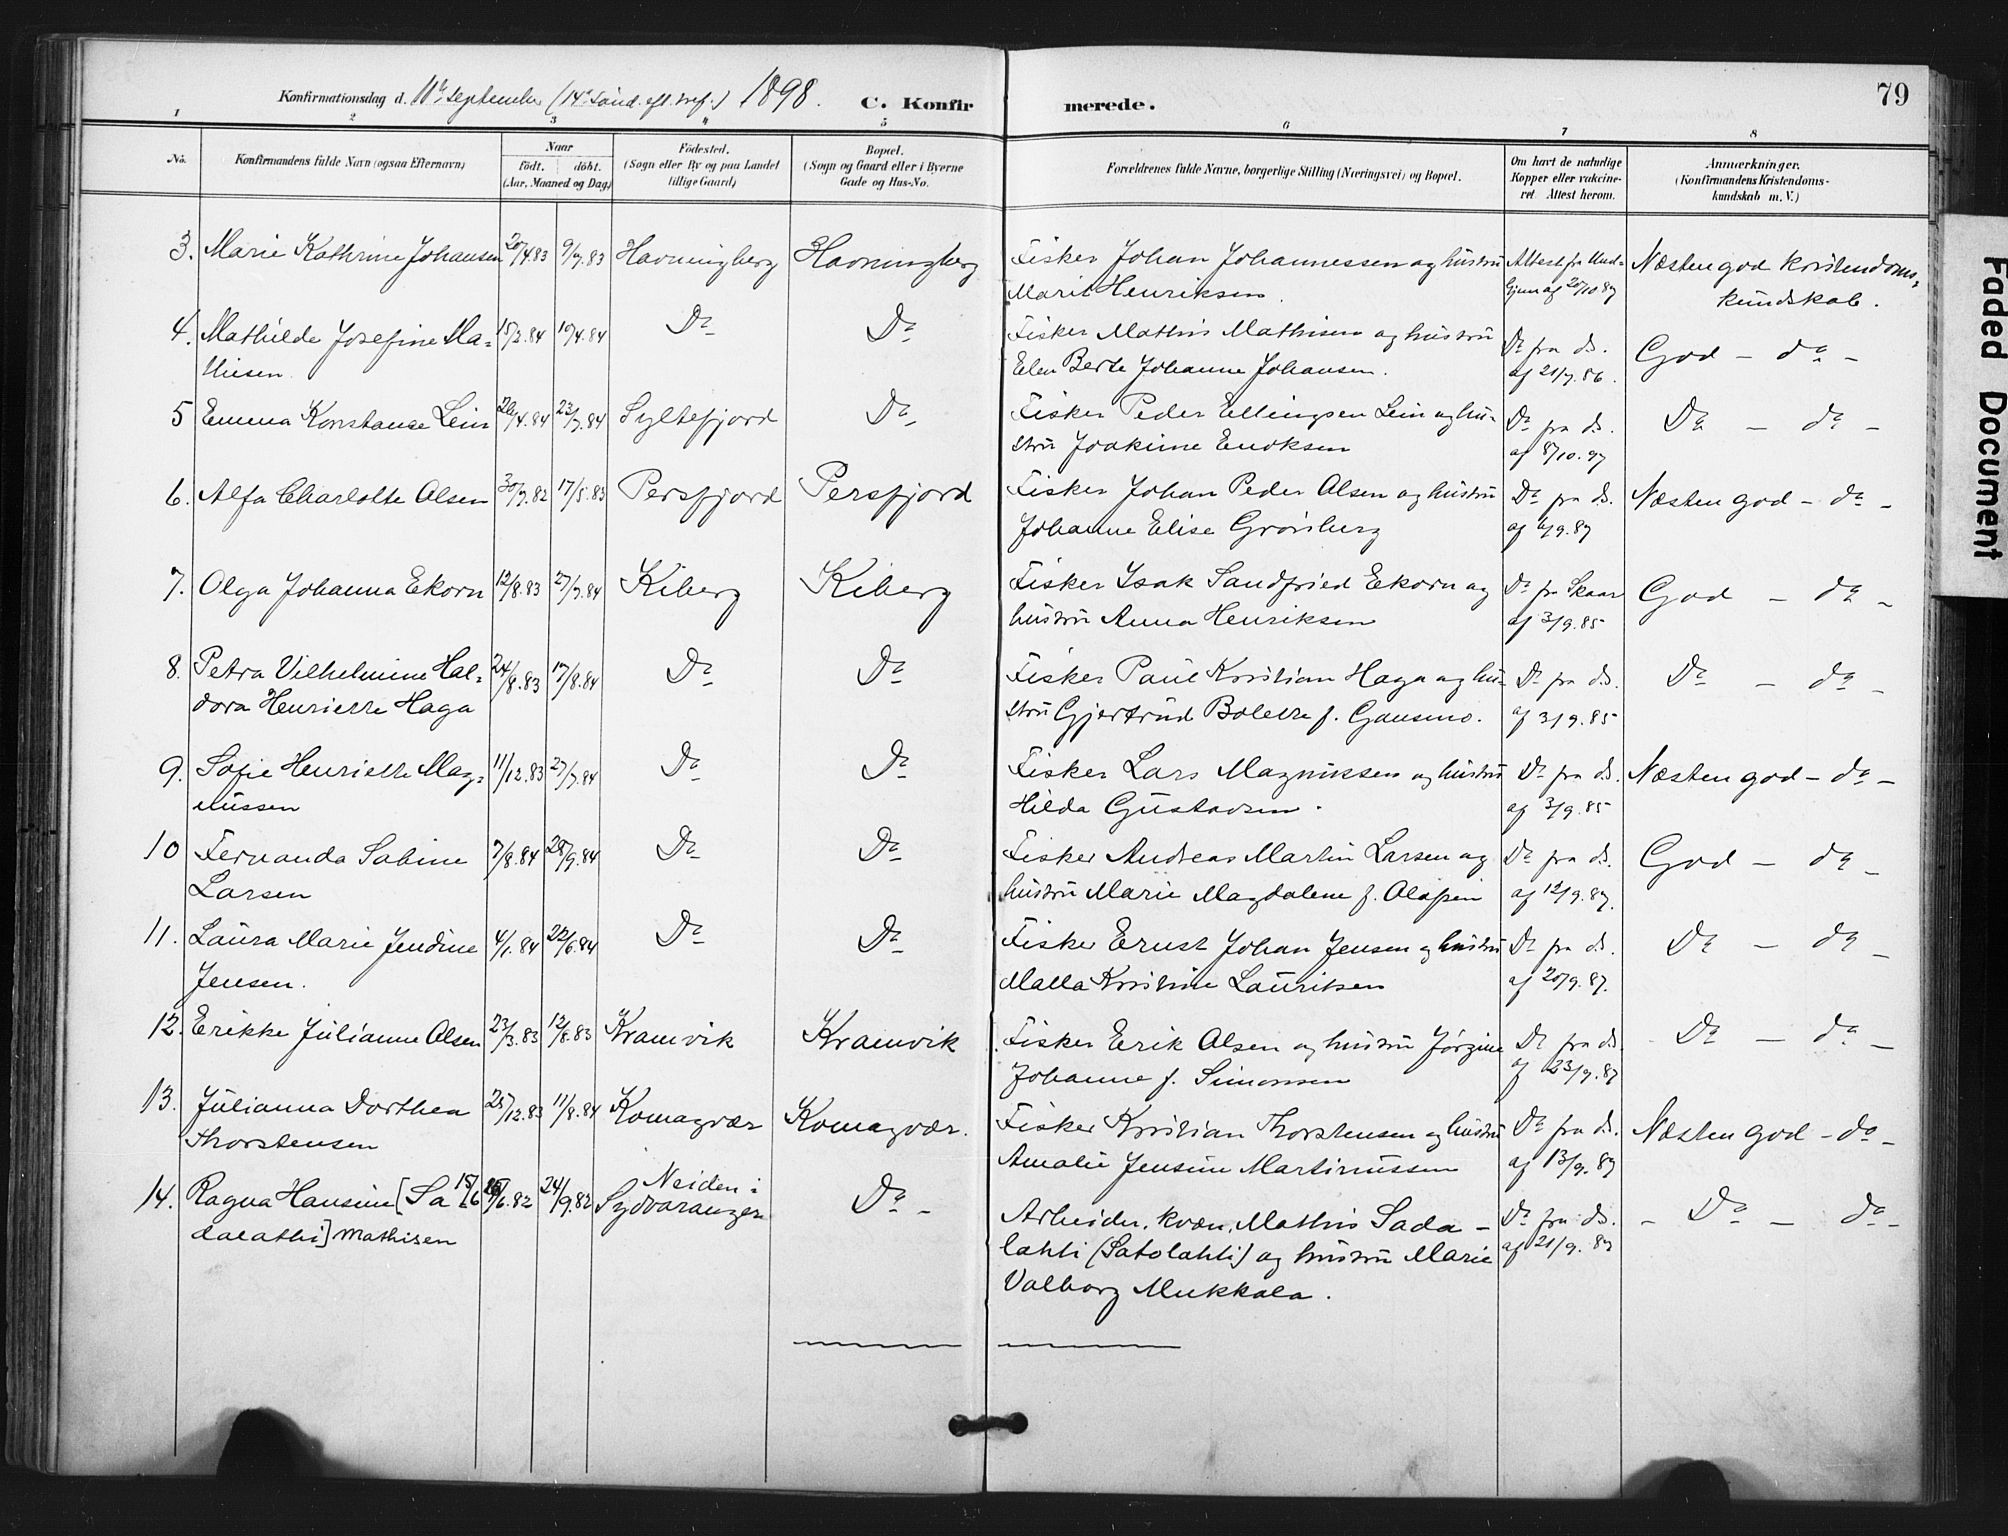 Konfirmationsdag d. 11te September (14de Sønd. eft. Tref.) 1898. C. Konfirmerede. 79
1 2 3 4 5 6 7 8
No. Konfirmandens fulde Navn (ogsaa Efternavn) Naar født. døbt. (Aar, Maaned og Dag) Fødested. (Sogn eller By og paa Landet tillige Gaard) Bopæl. (Sogn og Gaard eller i Byerne Gade og Hus-No. Forældrenes fulde Navne, borgerlige Stilling (Næringsvei) og Bopæl. Om havt de naturlige Kopper eller vakcineret Attest herom. Anmærkninger. (Konfirmandens Kristendomskundskab m. V.)
3. Marie Kathrine Johansen 20/4.83 9/7.83 Havningberg Havningberg Fisker Johan Johannessen og hustru Attest fra Und- Næsten god kristendoms-
Marit Henriksen. gjem af 20/10 87 kundskab.
4. Mathilde Josefine Ma- 15/2.84 10/4.84 Do Do Fisker Mathis Mathisen og hustru Do fra ds. God - do -
thiesen. Elen Berte Johanne Johansen. af 21/7.86.
5 Emma Konstanse Lein 26/4.84 23/7.84 Syltefjord Do Fisker Peder Ellingsen Lein og hu- Do fra ds. Do - do -
stru Joakime Enoksen af 8/10.97
6. Alfa Charlotte Olsen 30/7.82 17/5.83 Persfjord Persfjord Fisker Johan Peder Olsen og hustru Do fra ds. Næsten god - do -
Johanne Elise Grønberg af 6/9.87
7. Olga Johanna Ekorn 12/8.83 27/7.84 Kiberg Kiberg Fisker Isak Sandfried Ekorn og Do fra Skaar God - do -
hustru Anna Henriksen af 3/9.85
8. Petra Vilhelmine Hal- 24/8.83 17/8.84 Do Do Fisker Paul Kristian Haga og hu- Do fra ds. Do - do -
dora Henriette Haga stru Gjertrud Bolette f. Gausmo. af 3/9.85
9. Sofie Henriette Mag- 11/12.83 27/7.84 Do Do Fisker Lars Magnussen og hustru Do fra ds. Næsten god - do -
nussen Hilda Gustavsen. af 3/9.85
10 Fernanda Sabine 7/8.84 28/9.84 Do Do Fisker Andreas Martin Larsen og Do fra ds. God - do -
Larsen hustru Marie Magdalene f. Olafsen af 12/9.87.
11. Laura Marie Jendine 4/1.84 22/6.84 Do Do Fisker Ernst Johan Jensen og hustru Do fra ds. Do - do -
Jensen. Malla Kristine Lauritsen af 20/9.87.
12. Erikke Julianne Olsen 23/3.83 12/8.83 Kramvik Kramvik Fisker Erik Olsen og hustru Jørgine Do fra ds. Do - do -
Johanne f. Simonsen af 23/9.87
13. Julianna Dorthea 25/12.83 11/8.84 Komagvær Komagvær. Fisker Kristian Thorstensen og hustru Do fra ds. Næsten god - do -
Thorstensen Amalie Jensine Martinussen af 13/9.87
14. Ragna Hansine [Sa 15/6 6.82 24/9.82 Neiden i Sydvaranger Do - Arbeider, kvæn, Mathis Sada- Do fra ds. - Do - do -
dalathi] Mathisen lahti (Satolahti) og hustru Marie af 21/9.87
Valborg Mukkala.
Faded Document